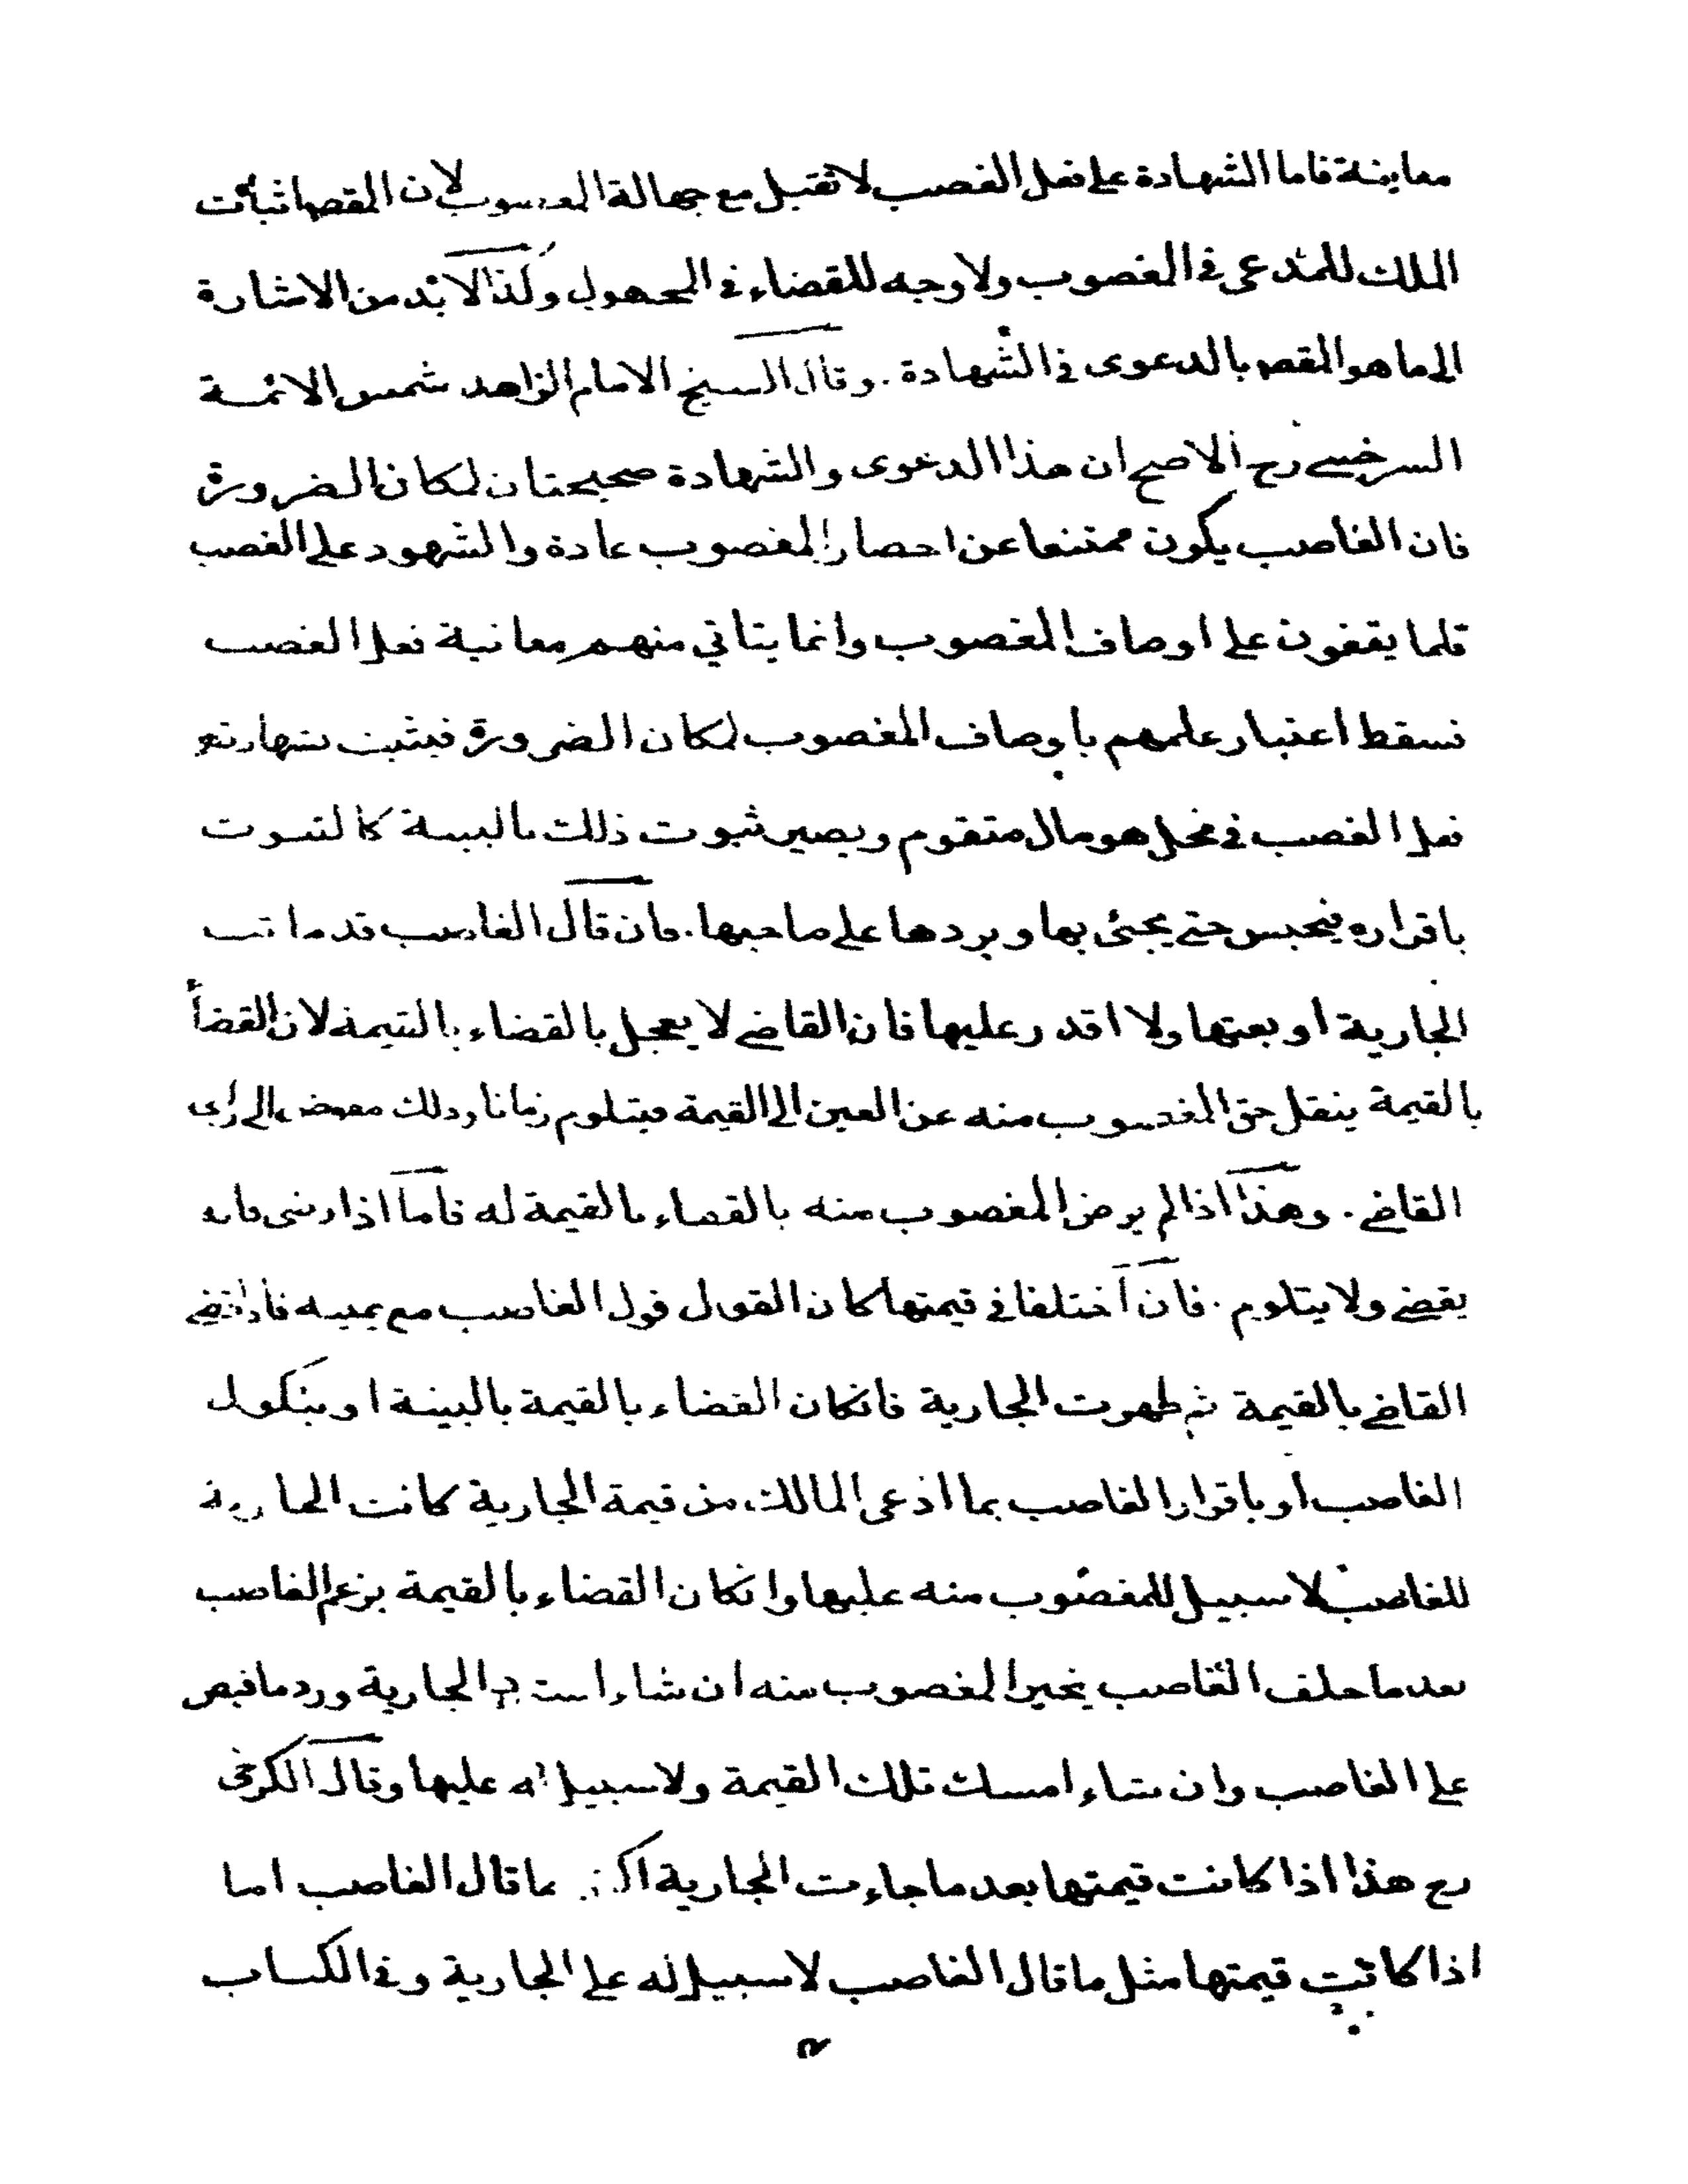 معاينة فاما الشهادة على فعل الغصب لا تقبل مع جهالة المغصوب لان المقص اثبات
الملك للمدعى في المغصوب ولا وجه للقضاء في المجهول وكذا لا بد من الاشارة
الى ما هو المقص بالدعوى في الشهادة . وقال الشيخ الامام الزاهد شمس الائمة
السرخسى رح الاصح ان هذا الدعوى والشهادة صحيحتان لمكان الضرورة
فان الغاصب يكون ممتنعا عن احضار المغصوب عادة والشهود على الغصب
قلما يقفون على اوصاف المغصوب وانما يتاتي منهم معانية فعل الغصب
فسقط اعتبار علمهم باوصاف المغصوب لمكان الضرورة فيثبت بشهادتهم
فعل الغصب في محل هو مال متقوم ويصير ثبوت ذلك بالبينة كالثبوت
باقراره فيحبس حتى يجئ بها ويردها على صاحبها . فان قال الغاصب قد ماتت
الجارية او بعتها ولا اقدر عليها فان القاضى لا يعجل بالقضاء بالقيمة لان القضأ
بالقيمة ينقل حق المغصوب منه عن العين الى القيمة فيتلوم زمانا وذلك مفوض الى راى
القاضى . وهذا اذا لم يرض المغصوب منه بالقضاء بالقيمة له فاما اذا رضى فانه
يقضى ولا يتلوم . فان اختلفا في قيمتها كان القول قول الغاصب مع يمينه فاذا قضى
القاضى بالقيمة ثم ظهرت الجارية فانكان القضاء بالقيمة بالبينة او بنكول
الغاصب او باقرار الغاصب بما ادعى المالك من قيمة الجارية كانت الجارية
للغاصب لا سبيل للمغصوب منه عليها وانكان القضاء بالقيمة بزعم الغاصب
بعد ما حلف الغاصب يخير المغصوب منه ان شاء استرد الجارية ورد ما قبض
على الغاصب وان شاء امسك تلك القيمة ولا سبيل له عليها وقال الكرخى
رح هذا اذا كانت قيمتها بعد ما جاءت الجارية اكثر مما قال الغاصب اما
اذا كانت قيمتها مثل ما قال الغاصب لا سبيل له على الجارية وفي الكتاب